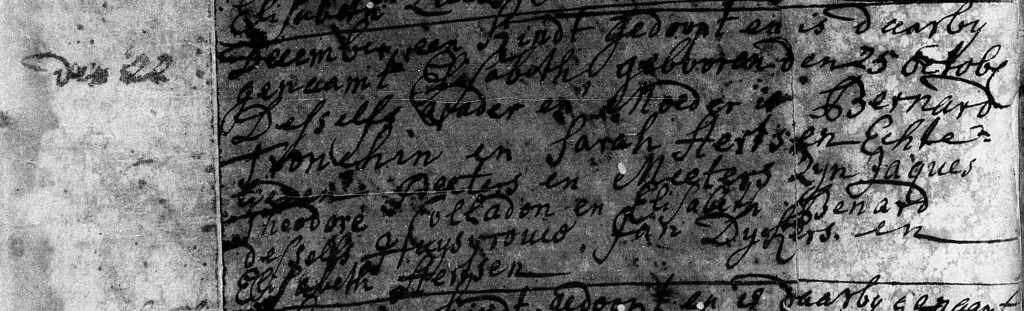 Elisabeth
den 22
December een Kindt gedoopt en is daarby
genaamt Elisabeth gebooren den 25 Octobr
Desselfs vader en Moeder is Bernard
Tronchin en Sarah Hertsen Echte=
Peeters en Meeters Zyn Jaques
Theodore Colladon en Elisabeth Benard
desselfs Huysvrouw Jan Dyckers en
Elisabeth Hertsen
Kindt gedoopt en is daarby genaamt